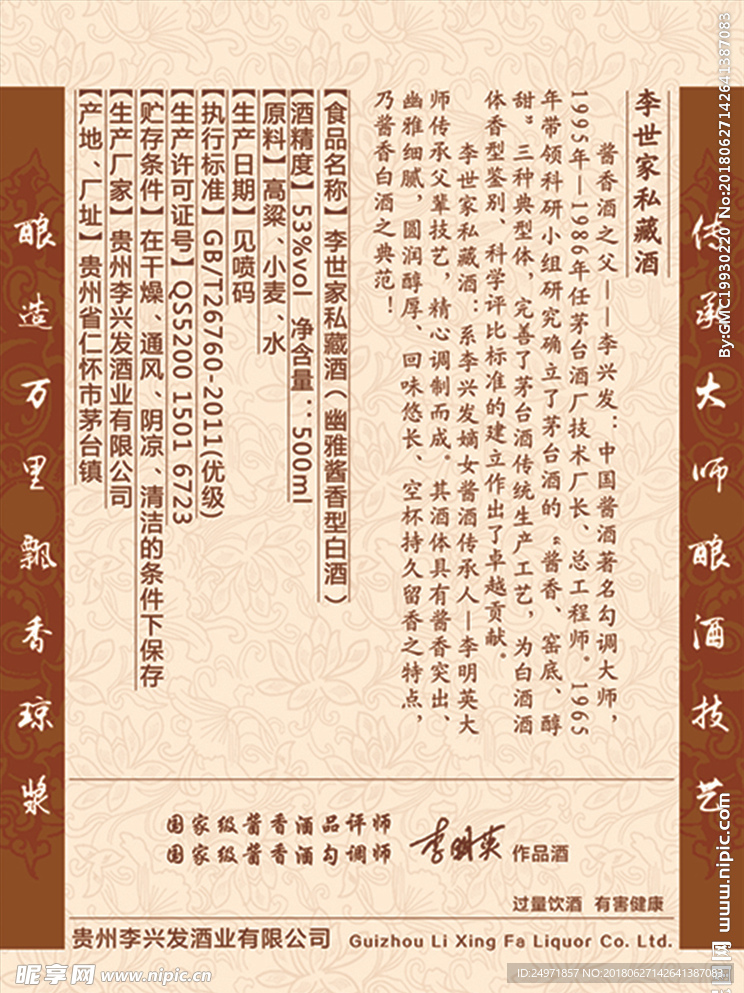 传承大师酿酒技艺
李世家私藏酒
酱香酒之父——李兴发：中国酱酒著名勾调大师，
1995年—1986年任茅台酒厂技术厂长、总工程师。1965
年带领科研小组研究确立了茅台酒的“酱香、窑底、醇
甜”三种典型体，完善了茅台酒传统生产工艺，为白酒酒
体香型鉴别、科学评比标准的建立作出了卓越贡献。
李世家私藏酒：系李兴发嫡女酱酒传承人—李明英大
师传承父辈技艺，精心调制而成。其酒体具有酱香突出、
幽雅细腻，圆润醇厚、回味悠长、空杯持久留香之特点，
乃酱香白酒之典范！
【食品名称】李世家私藏酒（幽雅酱香型白酒）
【酒精度】53%vol 净含量：500ml
【原料】高粱、小麦、水
【生产日期】见喷码
【执行标准】GB/T26760-2011(优级)
【生产许可证号】QS5200 1501 6723
【贮存条件】在干燥、通风、阴凉、清洁的条件下保存
【生产厂家】贵州李兴发酒业有限公司
【产地、厂址】贵州省仁怀市茅台镇
酿造万里飘香琼浆
国家级酱香酒品评师
国家级酱香酒勾调师
李明英 作品酒
过量饮酒 有害健康
贵州李兴发酒业有限公司 Guizhou Li Xing Fa Liquor Co. Ltd.
By:GMC19930220 No:20180627142641387083
昵享网 www.nipic.cn
www.nipic.com
ID:24971857 NO:20180627142641387083